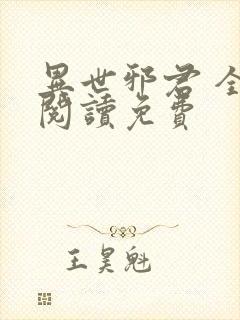 異世邪君 全
閱讀免費
王昊魁